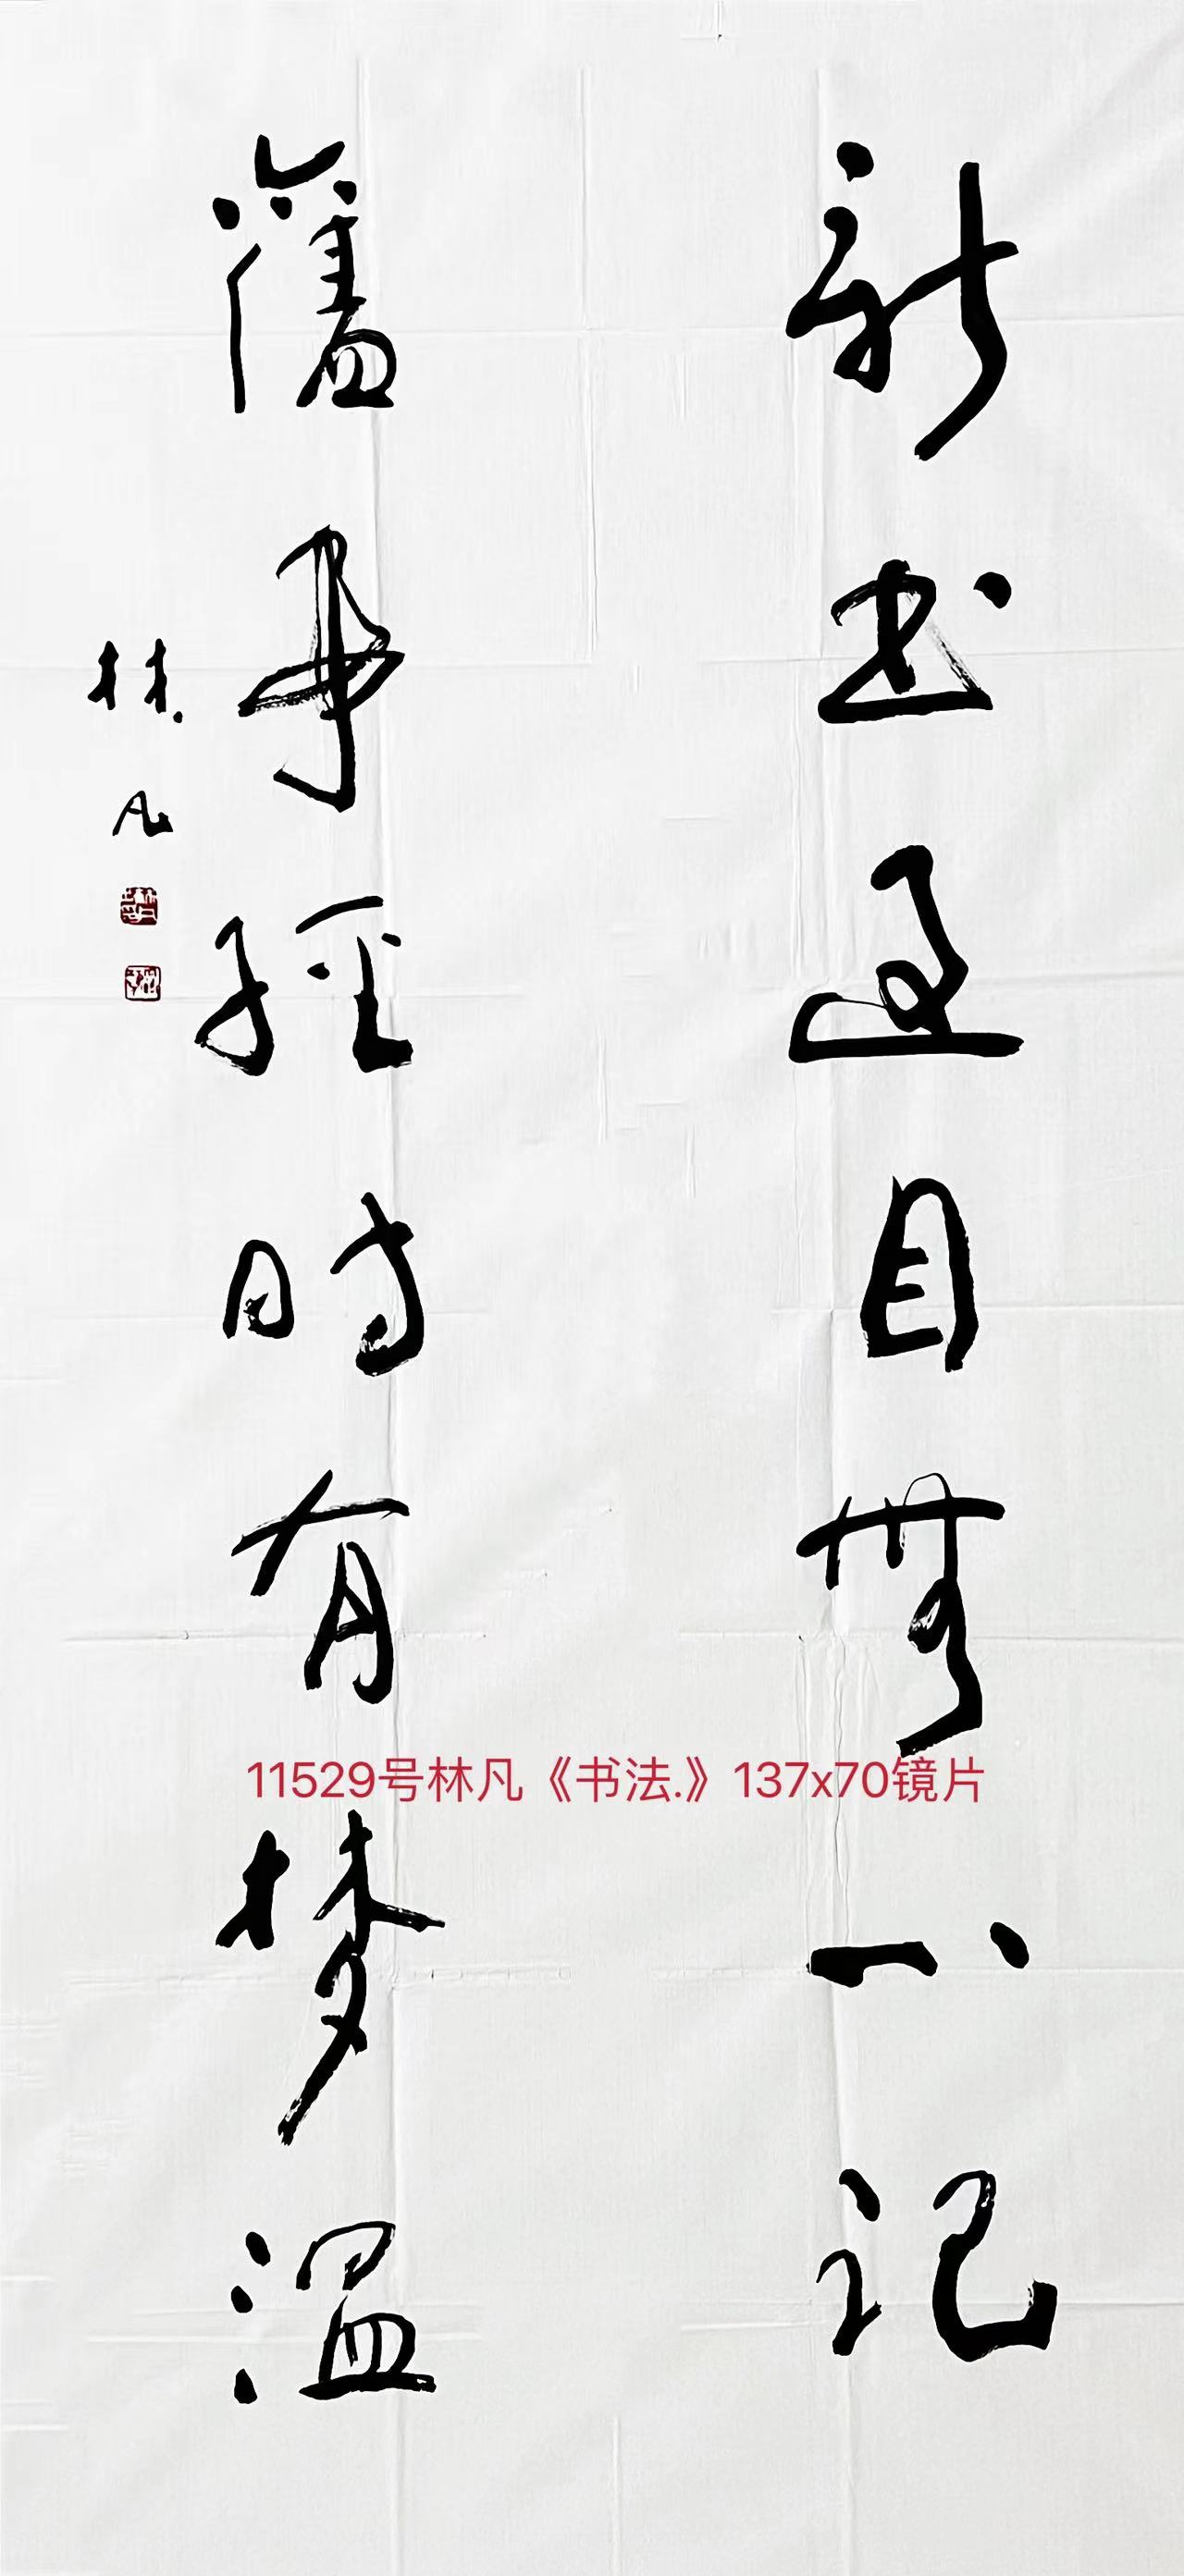 新书过目無心记
舊事經時有梦溫
林凡
11529号林凡《书法.》137x70镜片